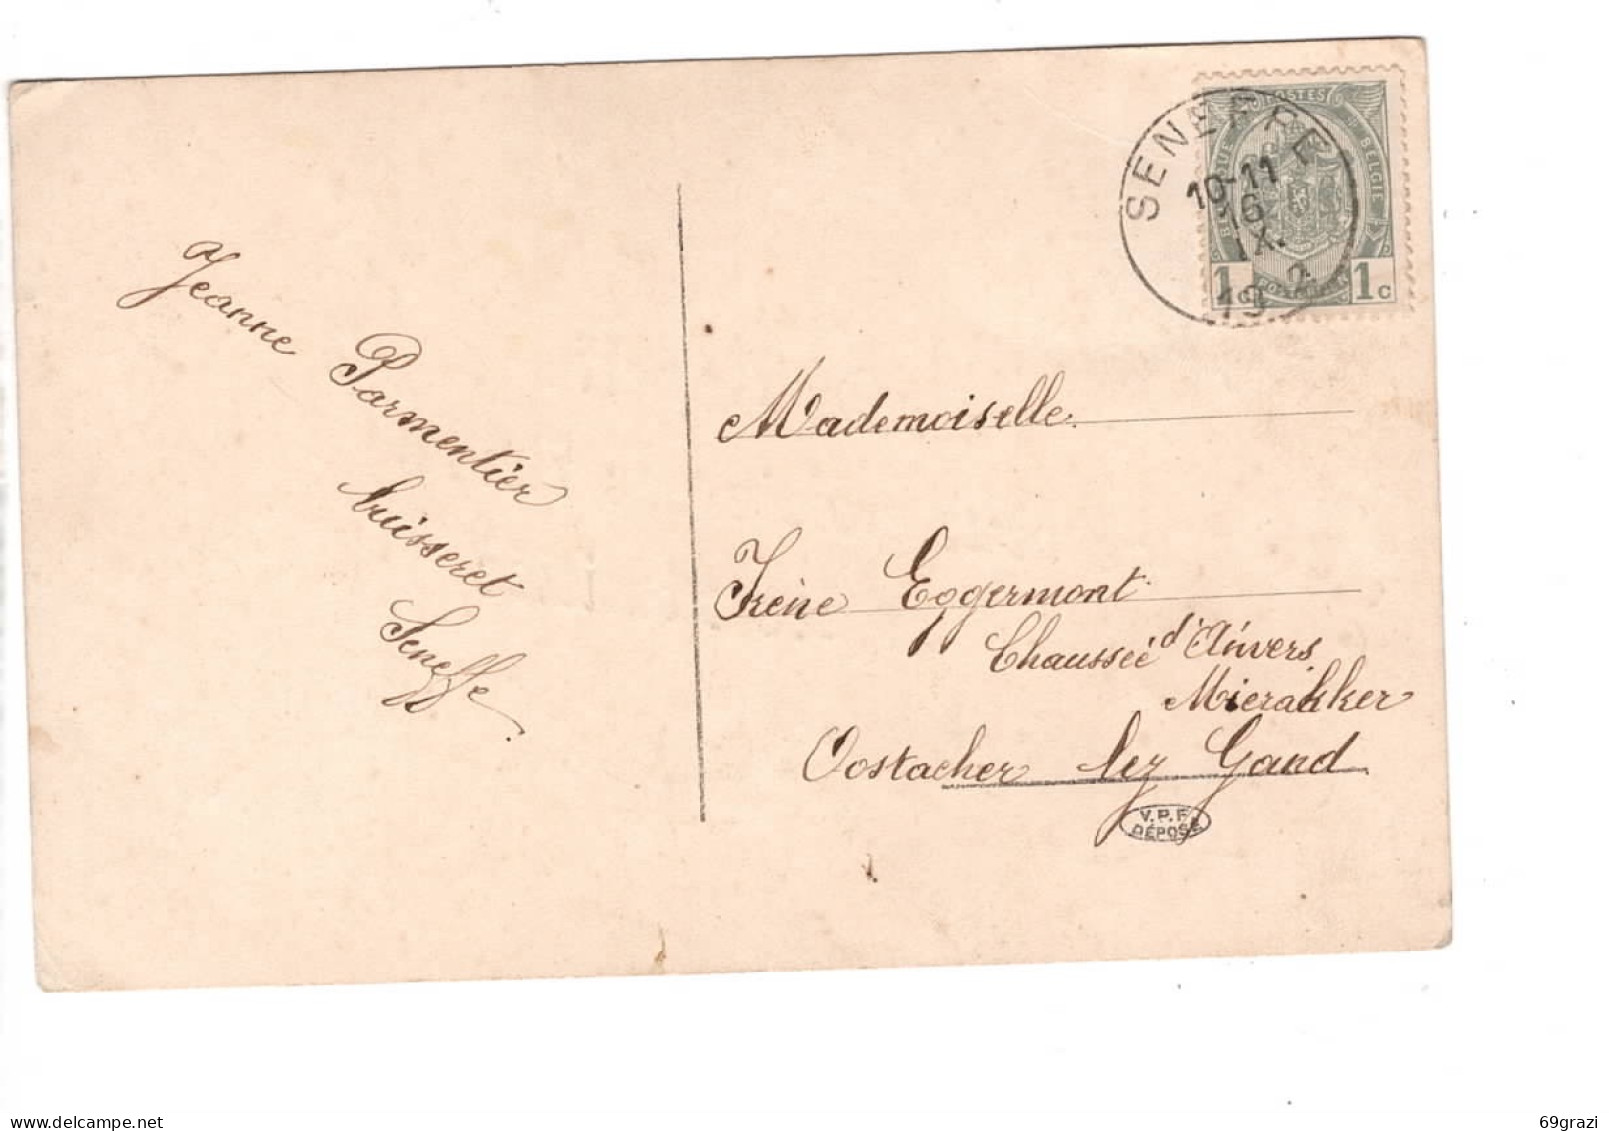 Jeanne
Parmentier
buisseret
Seneffe.
SENEFFE
10-11
16
IX.
19 2
POSTES
BELGIQUE
BELGIE
1c
1c
Mademoiselle
Irène Eggermont
Chaussée d'Anvers
Mierakker
Oostacher lez Gand
V.P.F
DÉPOSÉ
delcampe.net
69grazi